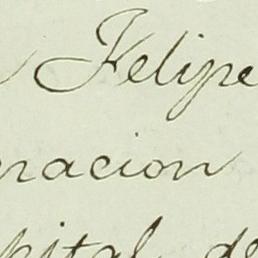 Felipe
nacion
pital de